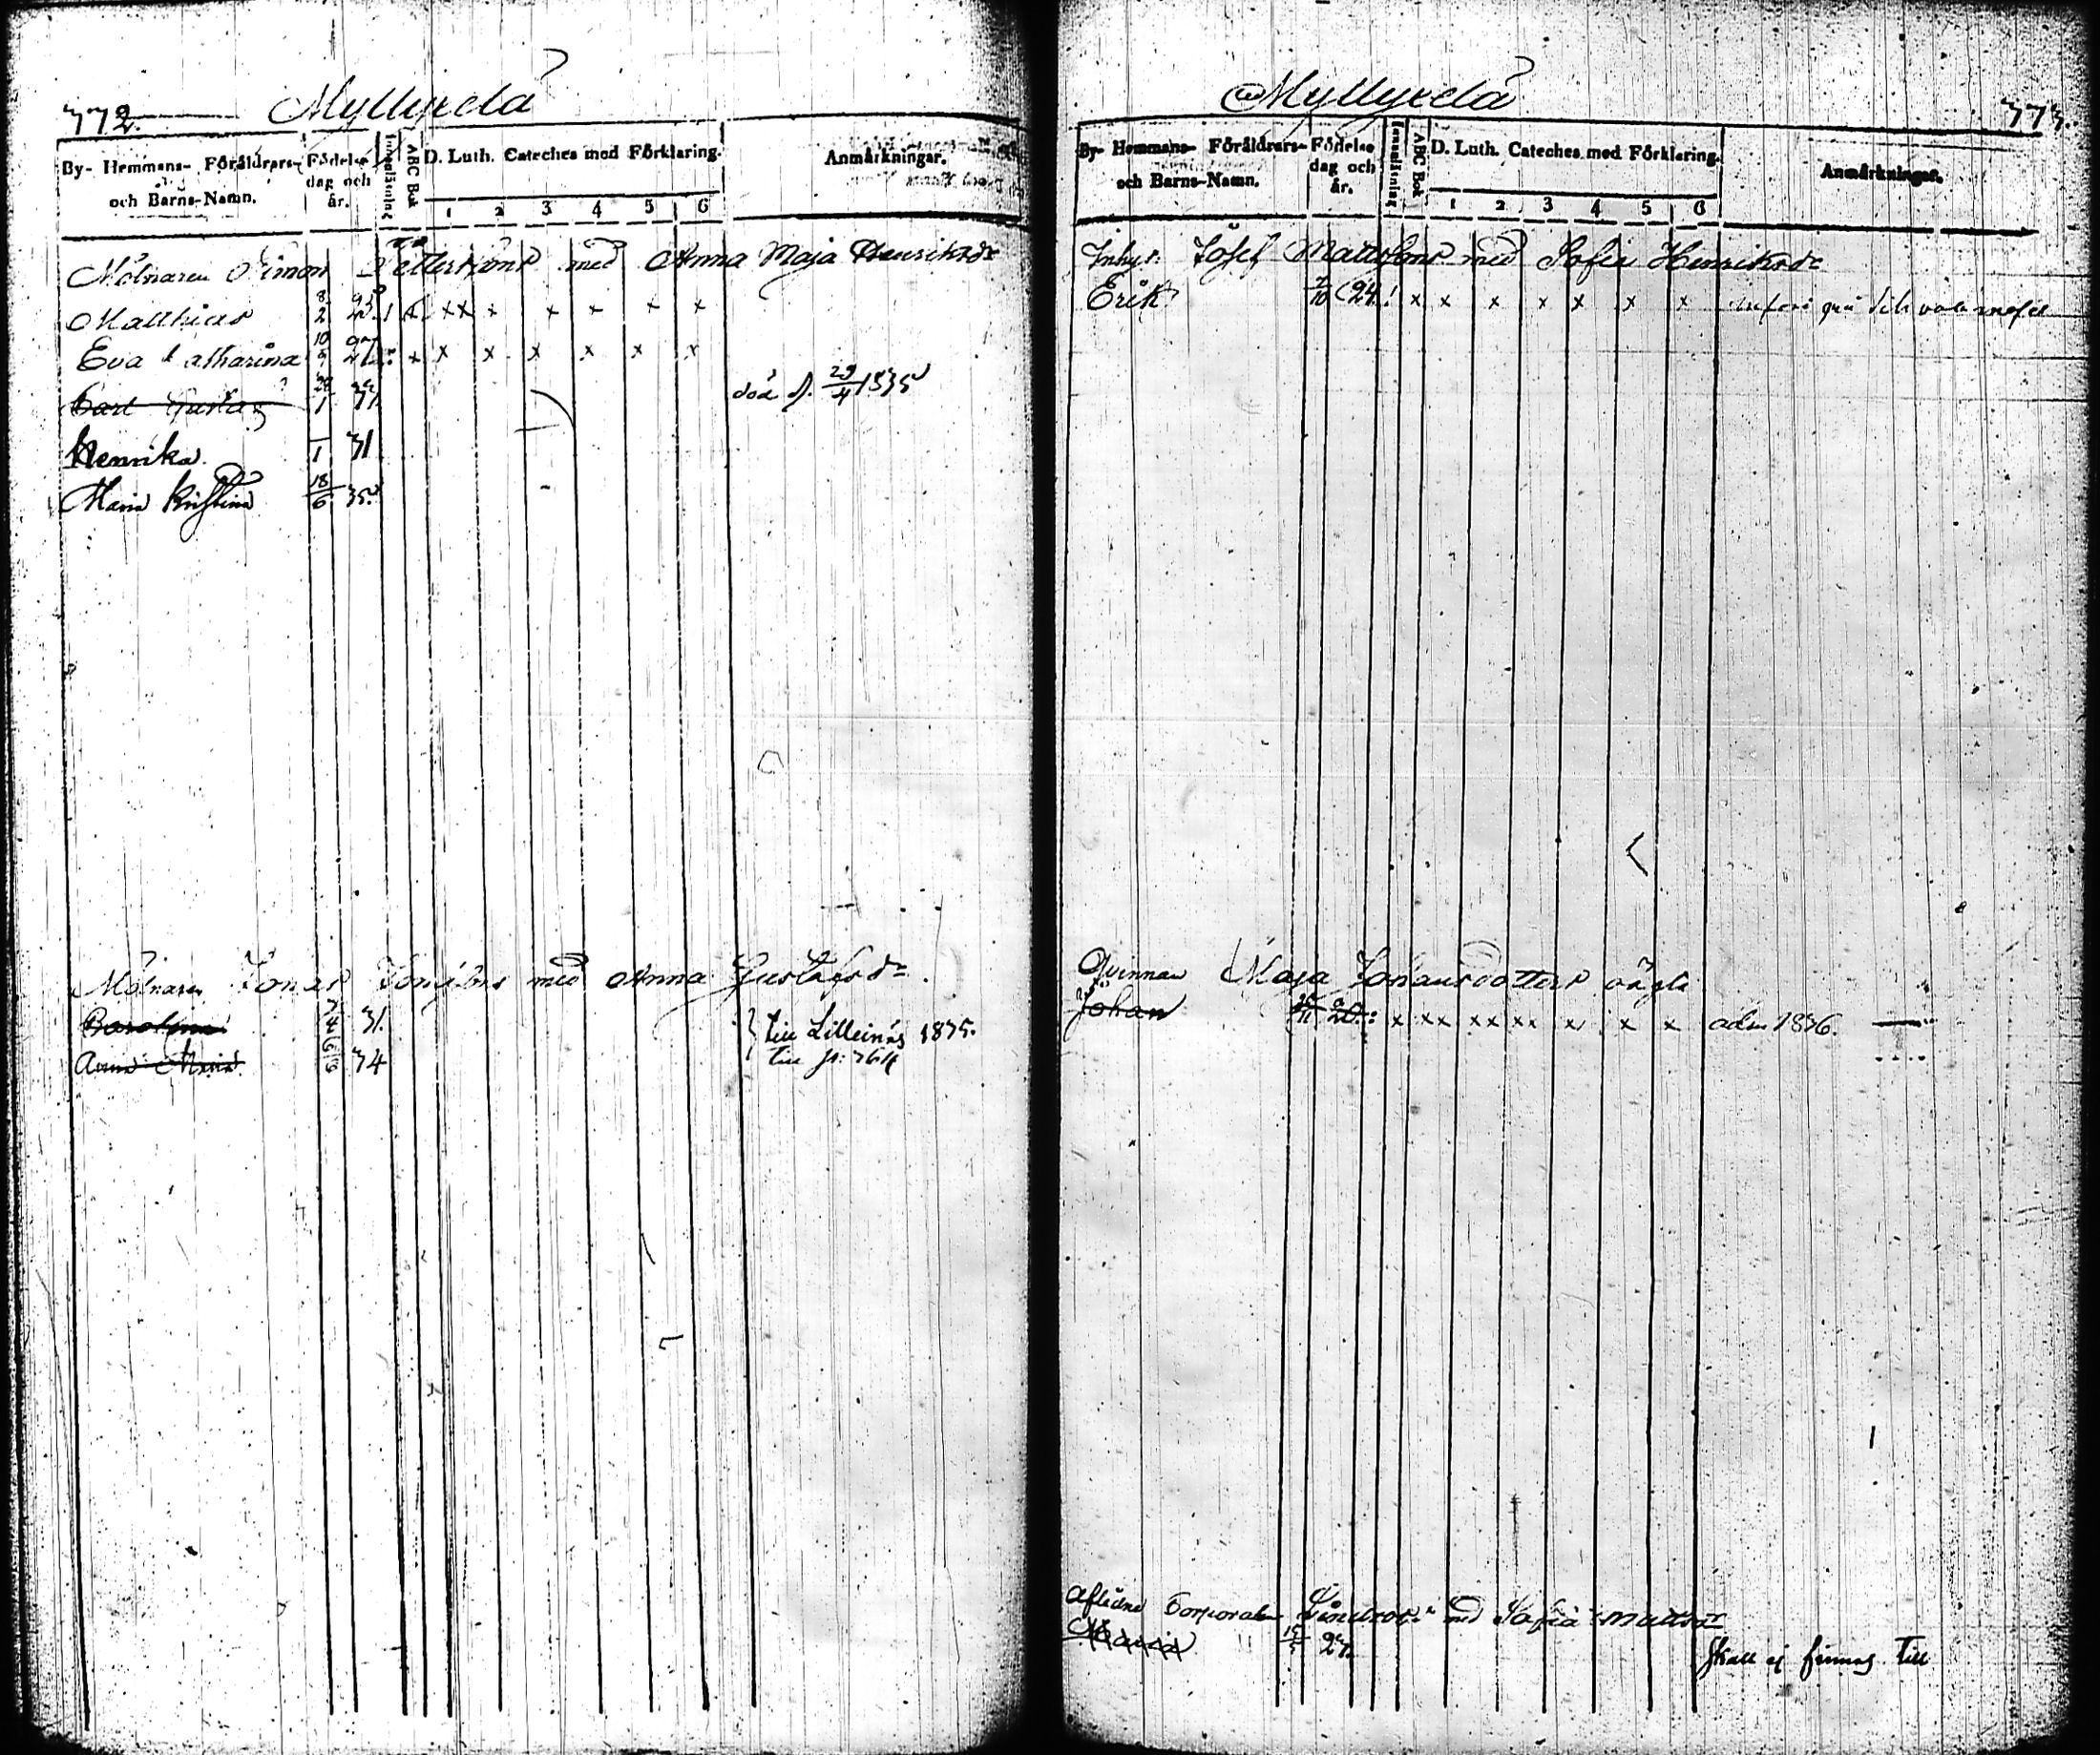 772. Myllykelä
By- Hemmans- Föräldrars- och Barns-Namn. Födelse dag och år. Innanläsning ABC Bok D. Luth. Cateches med Förklaring. 1 2 3 4 5 6 Anmärkningar.
Mölnaren Simon Petterssons med Anna Maja Henriksdr
Matthias 8/2 x xx x x x x x
Eva Catharina 10/9 x x x x x x x
Carl Gustaf 28/1 död d. 29/4 1835
Henrika 1 31
Maria Kristina 18/6 35.
Mölnaren Jonas med Anna Gustafsdr.
Carolina 7/4 31. till Lilleinäs 1835.
Anna Maria 6/6 34 till p: 764
Myllykelä 773.
By- Hemmans- Föräldrars- och Barns-Namn. Födelse dag och år. Innanläsning ABC Bok D. Luth. Cateches med Förklaring. 1 2 3 4 5 6 Anmärkningar.
Inhys: Josef Mattssons med Sofia Henriksdr
Erik 7/10 24. x x x x x x x
Qvinnan Maja Johansdotters oägta
Johan /11 20. x xx xx xx x x x adm 1836.
Aflidne Corporalen med Sofia Mattsdr
Maria 15/ 27. Skall ej finnas till